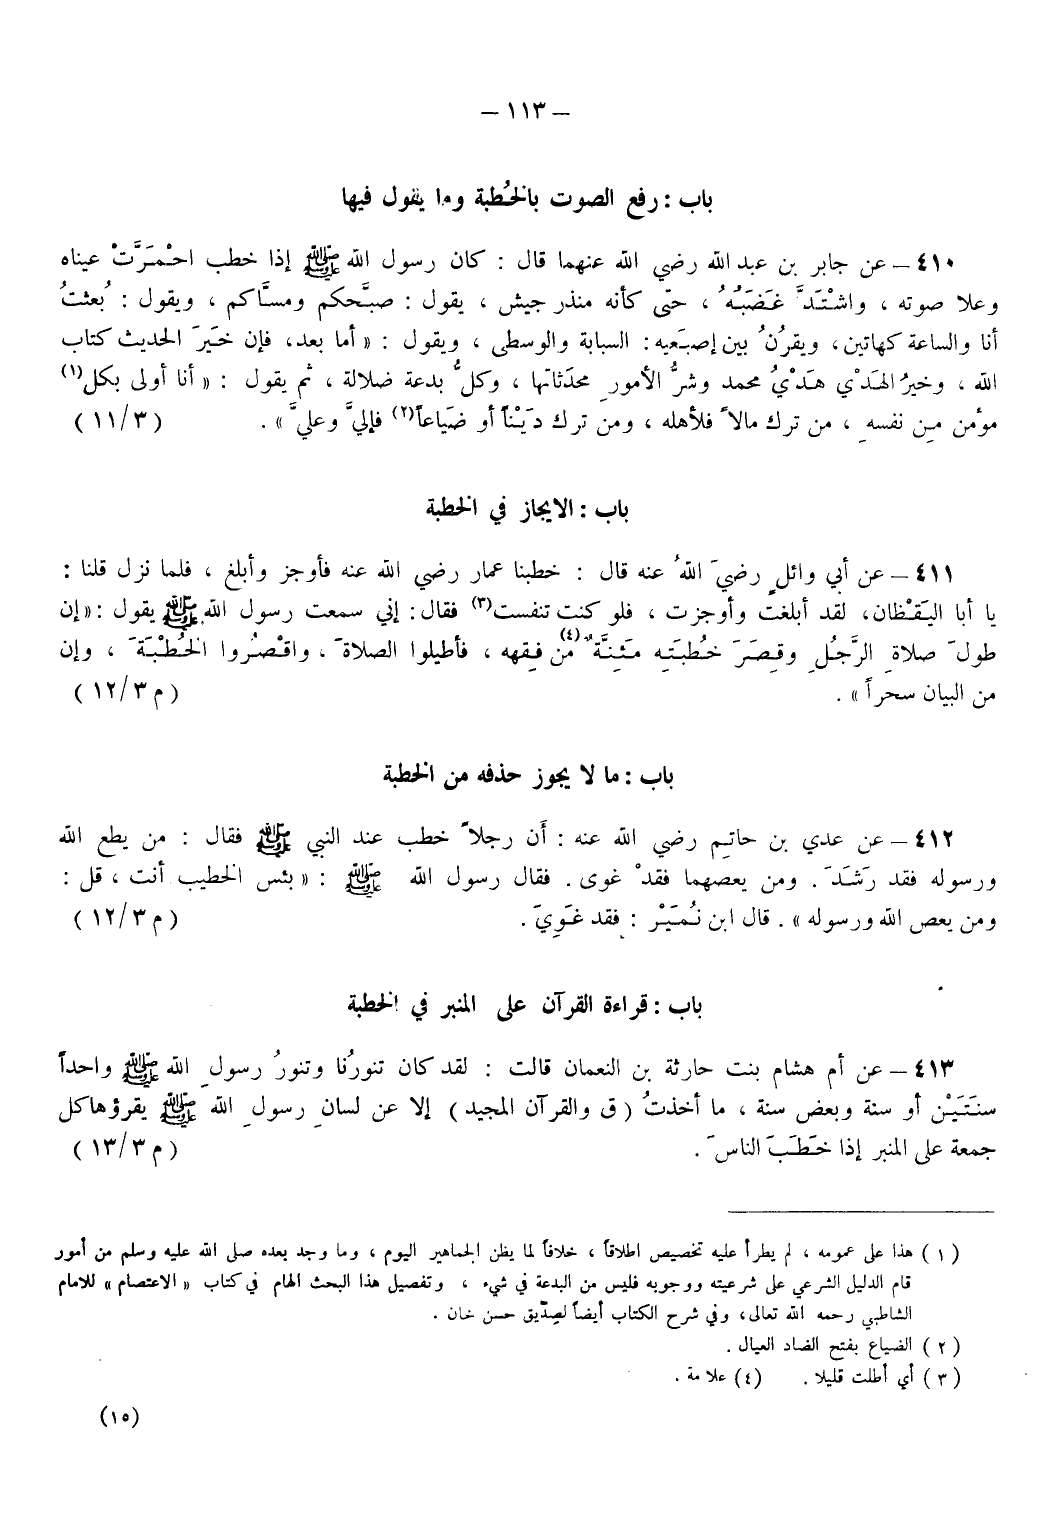 — ١١٣ —
باب : رفع الصوت بالخُطبة وما يقول فيها
٤١٠ — عن جابر بن عبد الله رضي الله عنهما قال : كان رسول الله ﷺ إذا خطب احْمَرَّتْ عيناه
وعلا صوته ، واشْتَدَّ غَضَبُهُ ، حتّى كأنه منذر جيش ، يقول : صبَّحكم ومسَّاكم ، ويقول : بُعثتُ
أنا والساعة كهاتين، ويقرُنُ بين إصبَعيه : السبابة والوسطى ، ويقول : « أما بعد، فإن خَيرَ الحديث كتاب
الله ، وخيرُ الهَدْي هَدْيُ محمد وشرُّ الأمورِ محدَثاتها ، وكلُّ بدعة ضلالة ، ثم يقول : « أنا أولى بكل(١)
مؤمن مِن نفسهِ ، من ترك مالاً فلأهله ، ومن ترك دَيْناً أو ضَياعاً(٢) فإليَّ وعليَّ » . (٣/١١)
باب : الايجاز في الخطبة
٤١١ — عن أبي وائلٍ رضيَ اللهُ عنه قال : خطبنا عمار رضي الله عنه فأوجز وأبلغ ، فلما نزل قلنا :
يا أبا اليَقْظان، لقد أبلغت وأوجزت ، فلو كنت تنفست(٣) فقال : إني سمعت رسول الله ﷺ يقول : « إن
طولَ صلاةِ الرَّجُلِ وقِصَرَ خُطبَتِهِ مَئِنَّةٌ(٤) من فِقهه ، فأطيلوا الصلاةَ ، واقْصُروا الخُطْبَةَ ، وإن
من البيان سحراً » . (م ٣/١٢)
باب : ما لا يجوز حذفه من الخطبة
٤١٢ — عن عدي بن حاتِم رضي الله عنه : أن رجلاً خطب عند النبي ﷺ فقال : من يطع الله
ورسوله فقد رَشَدَ . ومن يعصهما فقدْ غوى . فقال رسول الله ﷺ : « بئس الخطيب أنت ، قل :
ومن يعص الله ورسوله » . قال ابن نُمَيْر : فقد غَوِيَ . (م ٣/١٢)
باب : قراءة القرآن على المنبر في الخطبة
٤١٣ — عن أم هشام بنت حارثة بن النعمان قالت : لقد كان تنورُنا وتنورُ رسولِ الله ﷺ واحداً
سنَتَيْن أو سنة وبعض سنة ، ما أخذتُ ( ق والقرآن المجيد ) إلا عن لسانِ رسولِ الله ﷺ يقرؤها كل
جمعة على المنبر إذا خَطَبَ الناسَ . (م ٣/١٣)
( ١ ) هذا على عمومه ، لم يطرأ عليه تخصيص اطلاقاً ، خلافاً لما يظن الجماهير اليوم ، وما وجد بعده صلى الله عليه وسلم من أمور
قام الدليل الشرعي على شرعيته ووجوبه فليس من البدعة في شيء ، وتفصيل هذا البحث الهام في كتاب « الاعتصام » للامام
الشاطبي رحمه الله تعالى ، وفي شرح الكتاب أيضاً لصِدّيق حسن خان .
( ٢ ) الضياع بفتح الضاد العيال .
( ٣ ) أي أطلت قليلا . (٤) علامة .
(١٥)